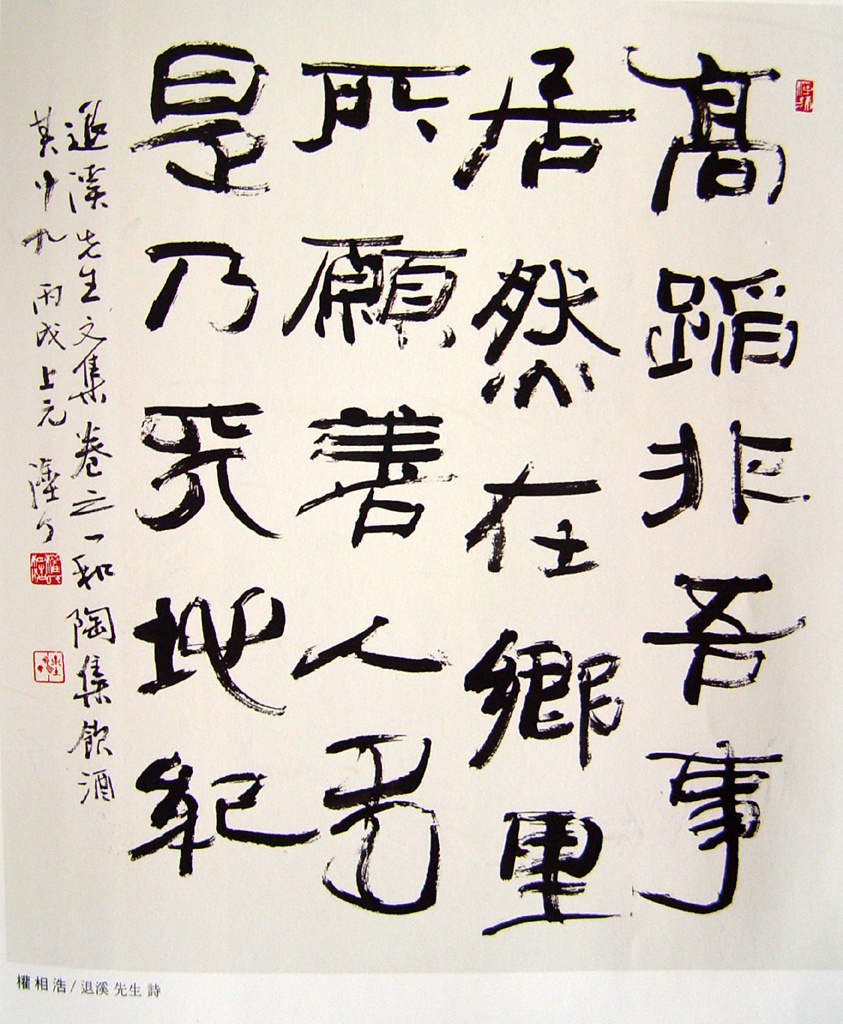 高蹈非吾事
居然在鄉里
所願善人多
是乃天地紀
退溪先生文集卷之一和陶集飲酒
其十九 丙戌上元
權相浩 / 退溪 先生 詩